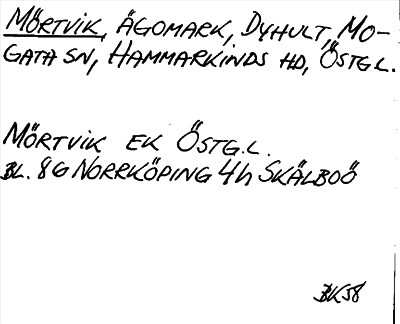 MÖRTVIK, ÄGOMARK, DYHULT, MO-
GATA SN, HAMMARKINDS HD, ÖSTG.L.
MÖRTVIK EK ÖSTG.L.
BL. 8G NORRKÖPING 4h SKÄLBOÖ
BK58